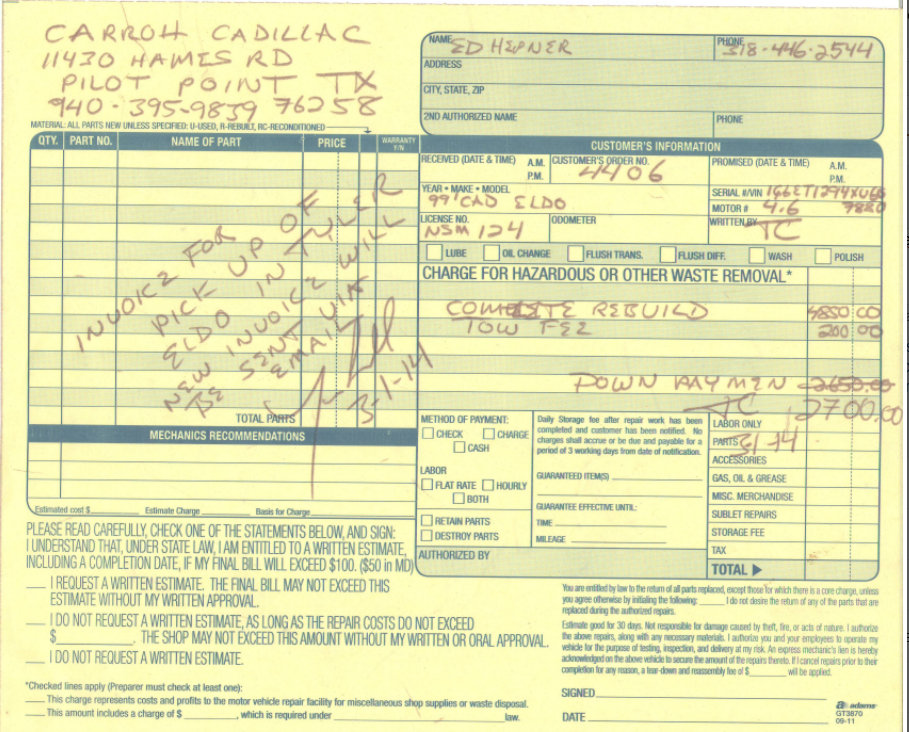 CARROLL CADILLAC
11430 HAMES RD
PILOT POINT TX
940-395-9839 76258
NAME ED HEPNER PHONE 318-446-2544
ADDRESS
CITY, STATE, ZIP
2ND AUTHORIZED NAME PHONE
MATERIAL: ALL PARTS NEW UNLESS SPECIFIED: U-USED, R-REBUILT, RC-RECONDITIONED
QTY. PART NO. NAME OF PART PRICE WARRANTY Y/N
CUSTOMER'S INFORMATION
RECEIVED (DATE & TIME) A.M. P.M. CUSTOMER'S ORDER NO. 4406 PROMISED (DATE & TIME) A.M. P.M.
YEAR • MAKE • MODEL 99' CAD ELDO SERIAL #/VIN
MOTOR # 4.6
LICENSE NO. NSM 124 ODOMETER WRITTEN BY TC
LUBE OIL CHANGE FLUSH TRANS. FLUSH DIFF. WASH POLISH
CHARGE FOR HAZARDOUS OR OTHER WASTE REMOVAL*
COMPLETE REBUILD 4850 00
TOW FEE 200 00
DOWN PAYMEN 2650.00
TC 2700.00
INVOICE FOR
PICK UP OF
ELDO IN TYLER
NEW INVOICE WILL
BE SENT VIA
EMAIL
3-1-14
TOTAL PARTS
MECHANICS RECOMMENDATIONS
Estimated cost $ Estimate Charge Basis for Charge
METHOD OF PAYMENT:
CHECK CHARGE
CASH
LABOR
FLAT RATE HOURLY
BOTH
RETAIN PARTS
DESTROY PARTS
AUTHORIZED BY
Daily Storage fee after repair work has been
completed and customer has been notified. No
charges shall accrue or be due and payable for a
period of 3 working days from date of notification.
GUARANTEED ITEM(S)
GUARANTEE EFFECTIVE UNTIL:
TIME
MILEAGE
LABOR ONLY
PARTS
ACCESSORIES
GAS, OIL & GREASE
MISC. MERCHANDISE
SUBLET REPAIRS
STORAGE FEE
TAX
TOTAL
PLEASE READ CAREFULLY, CHECK ONE OF THE STATEMENTS BELOW, AND SIGN:
I UNDERSTAND THAT, UNDER STATE LAW, I AM ENTITLED TO A WRITTEN ESTIMATE,
INCLUDING A COMPLETION DATE, IF MY FINAL BILL WILL EXCEED $100. ($50 in MD)
I REQUEST A WRITTEN ESTIMATE. THE FINAL BILL MAY NOT EXCEED THIS
ESTIMATE WITHOUT MY WRITTEN APPROVAL.
I DO NOT REQUEST A WRITTEN ESTIMATE, AS LONG AS THE REPAIR COSTS DO NOT EXCEED
$ THE SHOP MAY NOT EXCEED THIS AMOUNT WITHOUT MY WRITTEN OR ORAL APPROVAL.
I DO NOT REQUEST A WRITTEN ESTIMATE.
*Checked lines apply (Preparer must check at least one):
This charge represents costs and profits to the motor vehicle repair facility for miscellaneous shop supplies or waste disposal.
This amount includes a charge of $ , which is required under law.
You are entitled by law to the return of all parts replaced, except those for which there is a core charge, unless
you agree otherwise by initialing the following: I do not desire the return of any of the parts that are
replaced during the authorized repairs.
Estimate good for 30 days. Not responsible for damage caused by theft, fire, or acts of nature. I authorize
the above repairs, along with any necessary materials. I authorize you and your employees to operate my
vehicle for the purpose of testing, inspection, and delivery at my risk. An express mechanic's lien is hereby
acknowledged on the above vehicle to secure the amount of the repairs thereto. If I cancel repairs prior to their
completion for any reason, a tear-down and reassembly fee of $ will be applied.
SIGNED
DATE
adams
GT3870
09-11